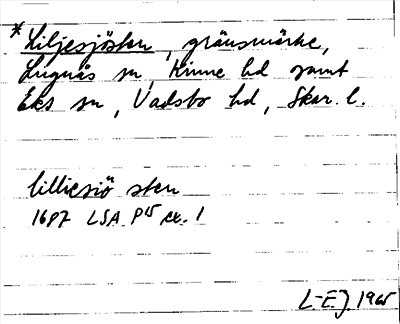 *Liljesjösten, gränsmärke,
Lugnås sn, Kinne hd samt
Eks sn, Vadsbo hd, Skar. l.
lilliesiö sten
1687 LSA P15 ex. 1
L-EJ. 1965